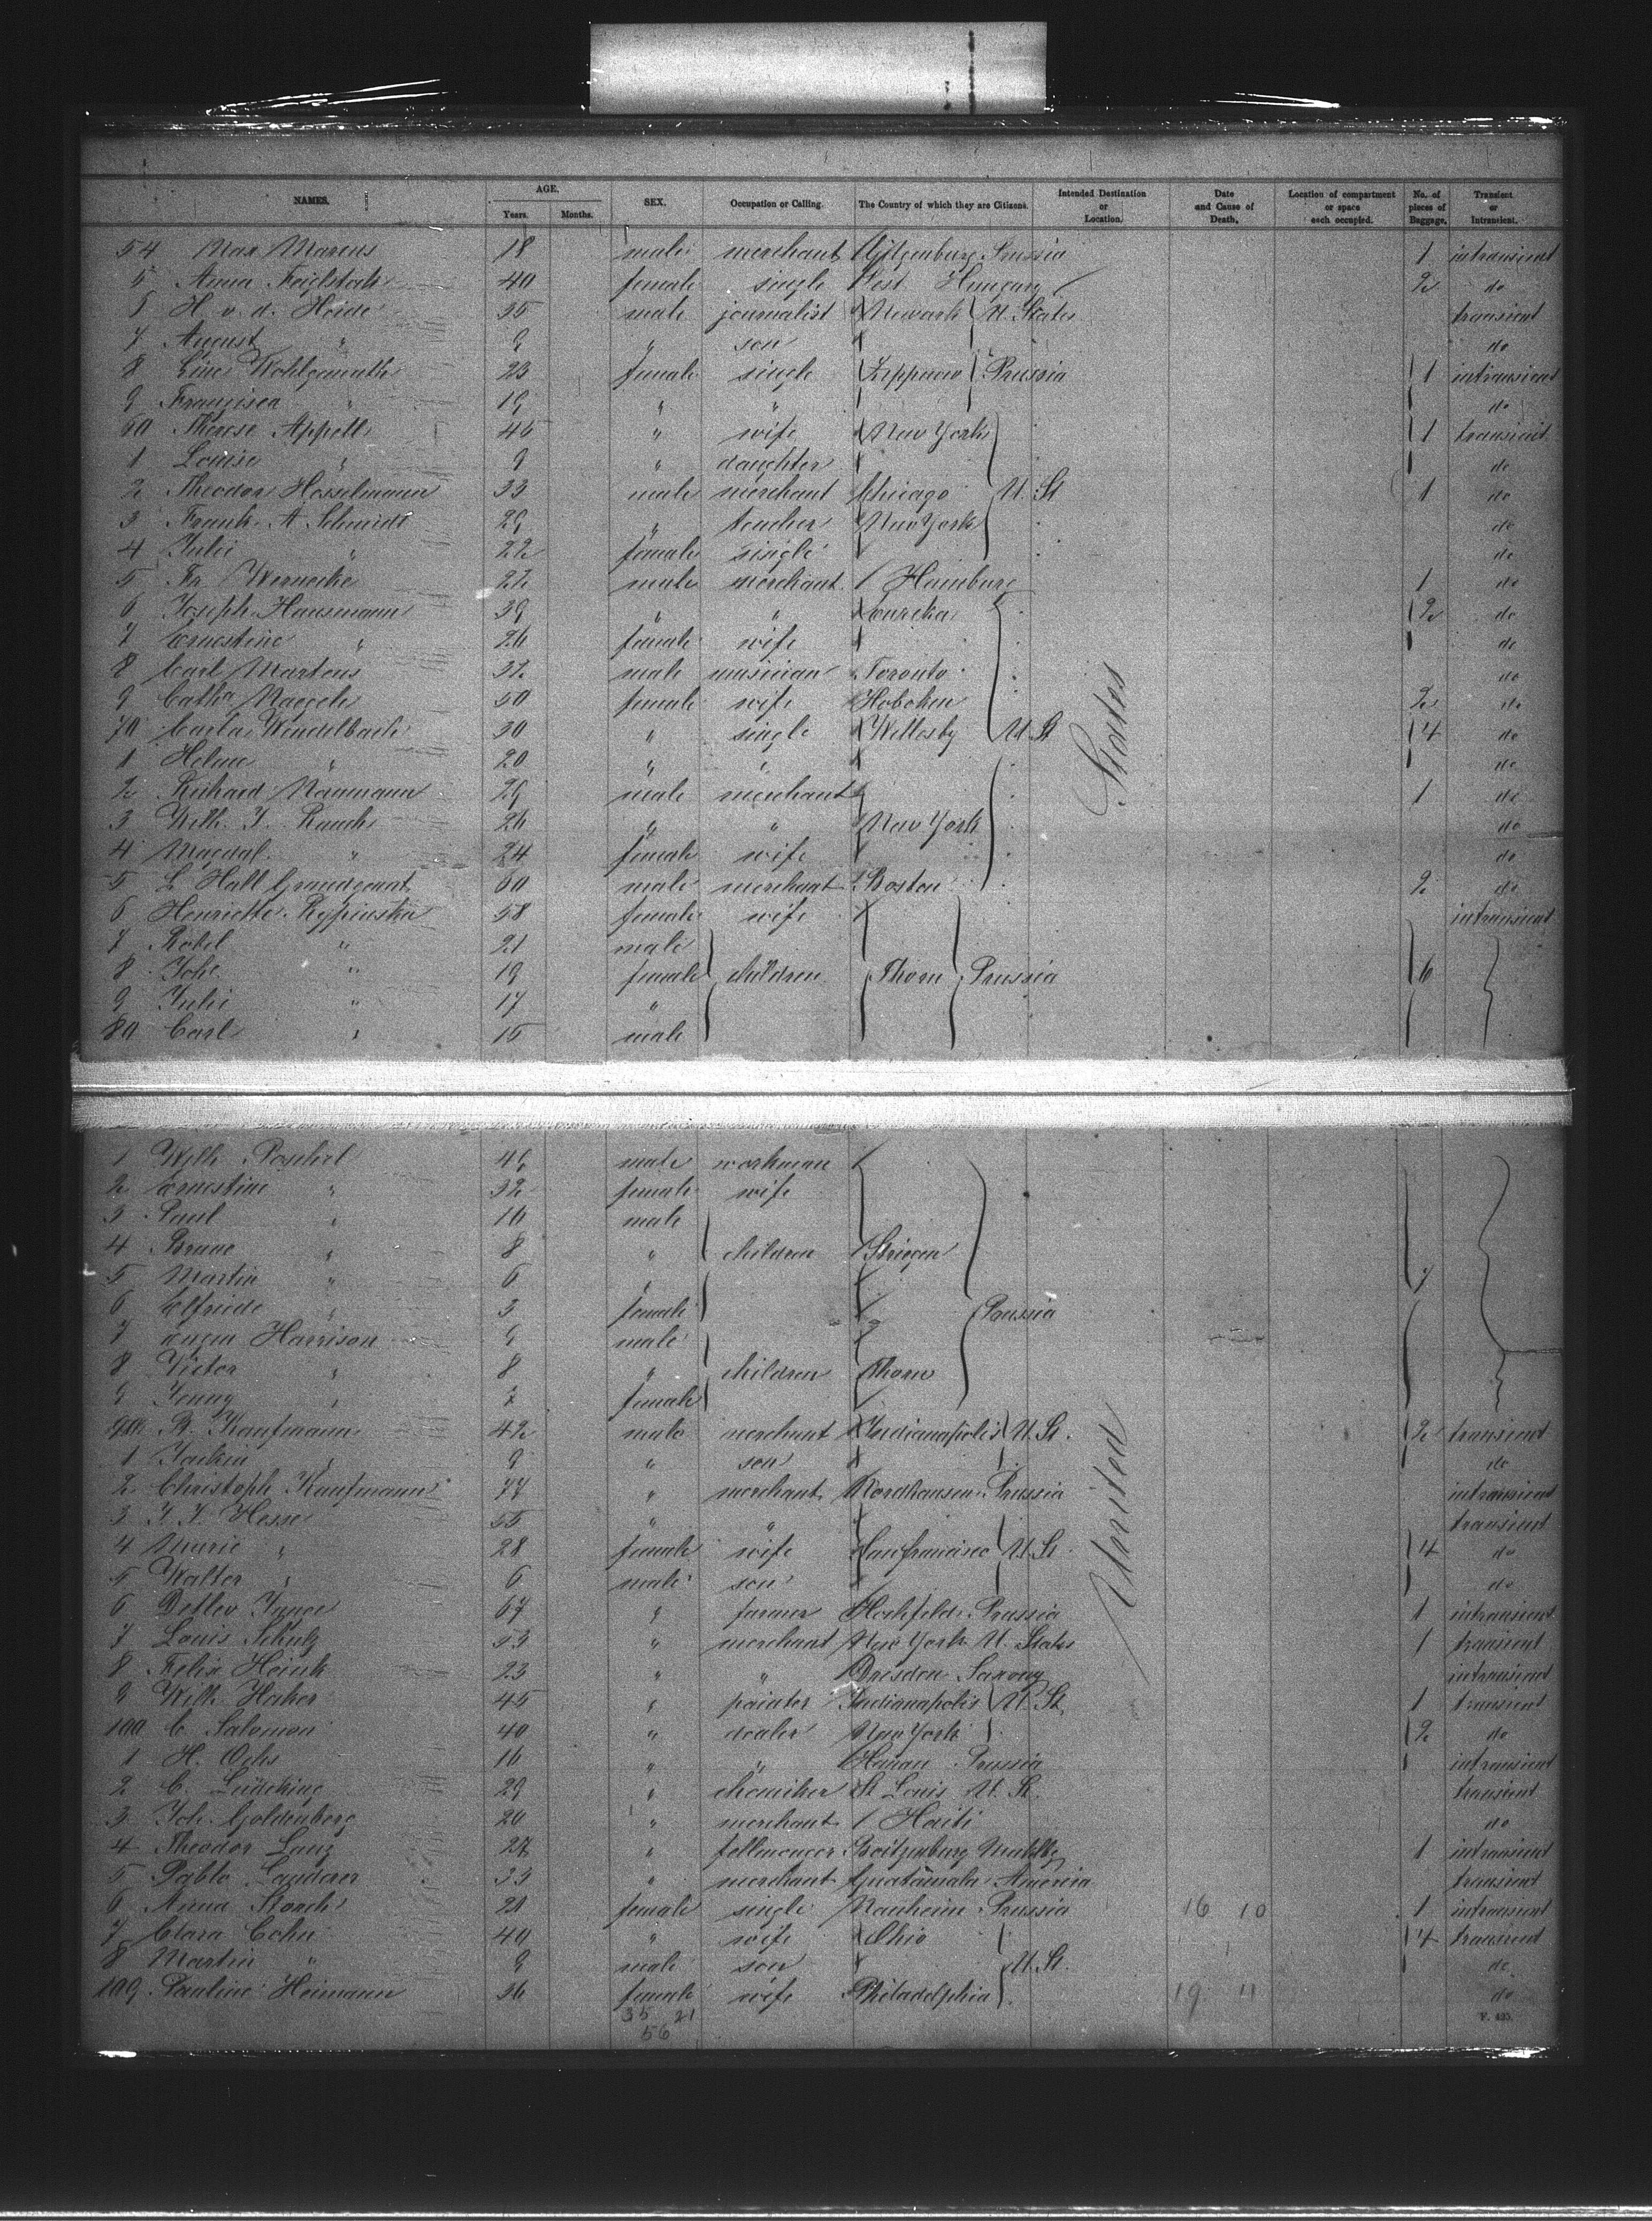 NAMES. AGE. Years. Months. SEX. Occupation or Calling. The Country of which they are Citizens. Intended Destination or Location. Date and Cause of Death. Location of compartment or space each occupied. No. of pieces of Baggage. Transient or Intransient.
54 Max Marcus 18 male merchant Prussia 1 intransient
5 Anna 40 female single Pest Hungary 2 do
H. v. d. Heide 35 male journalist Newark U. States transient
7 August " 9 " son do
8 Line Wohlgemuth 23 female single Prussia 1 intransient
9 Franzisca " 19 " " do
60 Therese Appell 45 " wife New York 1 transient
1 Louise " 9 " daughter do
2 Theodor Hesselmann 33 male merchant Chicago U. St 1 do
3 Frank A Schmidt 29 " teacher New York do
4 Julie " 22 female single do
5 Fr. Wernecke 22 male merchant Hamburg 1 do
6 Joseph Hausmann 39 " " Eureka 2 do
7 Ernestine " 26 female wife do
8 Carl Martens 32 male musician Toronto do
9 Catha Naegele 50 female wife Hoboken 2 do
70 Carla Wendelbach 30 " single Wellesly U. St 4 do
1 Helene " 20 " " do
2 Richard Naumann 29 male merchant 1 do
3 Wilh. J. Rauch 26 " " New York do
4 Magdal. " 24 female wife do
5 L Hall Grandgeant 60 male merchant Boston 2 do
6 Henriette Rypinska 58 female wife intransient
7 " 21 male
8 Joh. " 19 female children Thorn Prussia 6
9 Julie " 17 "
80 Carl " 15 male
1 Wilh. Poschel 49 male workman
2 Ernestine " 32 female wife
3 Paul " 10 male
4 Bruno " 8 " children Striegau
5 Martin " 6 " 7
6 Elfriede " 3 female Prussia
7 Eugen Harrison 9 male
8 Victor " 8 " children Thorn
9 Jenny " 7 female
90 R. Kaufmann 42 male merchant Indianapolis U. St. 2 transient
1 " 9 " son do
2 Christoph Kaufmann 77 " merchant Nordhausen Prussia intransient
3 J. J. Hesse 55 " " transient
4 Marie " 28 female wife San francisco U. St. 4 do
5 Walter " 6 male son do
6 Detlev 67 " farmer Hochfeld Prussia 1 intransient
7 Louis Schulz 53 " merchant New York U. States 1 transient
8 Felix Heink 23 " " Dresden Saxony intransient
9 Wilh. Haker 45 " painter Indianapolis U. St. 1 transient
100 C. Salomon 40 " dealer New York 2 do
1 H. Ochs 16 " " Hanau Prussia intransient
2 C. Luedeking 29 " chemiker St Louis U. St. transient
3 Joh. Goldenberg 20 " merchant Haiti do
4 Theodor Lanz 27 " Boitzenburg 1 intransient
5 Pablo Landerer 33 " merchant Guatamala America transient
6 Anna Storch 21 female single Manheim Prussia 16 10 1 intransient
7 Clara Cohn 40 " wife Ohio 4 transient
8 Martin " 9 male son U. St. do
109 Pauline Heimann 36 female wife Philadelphia 19 11 do
35 21
56
F. 425.
United States